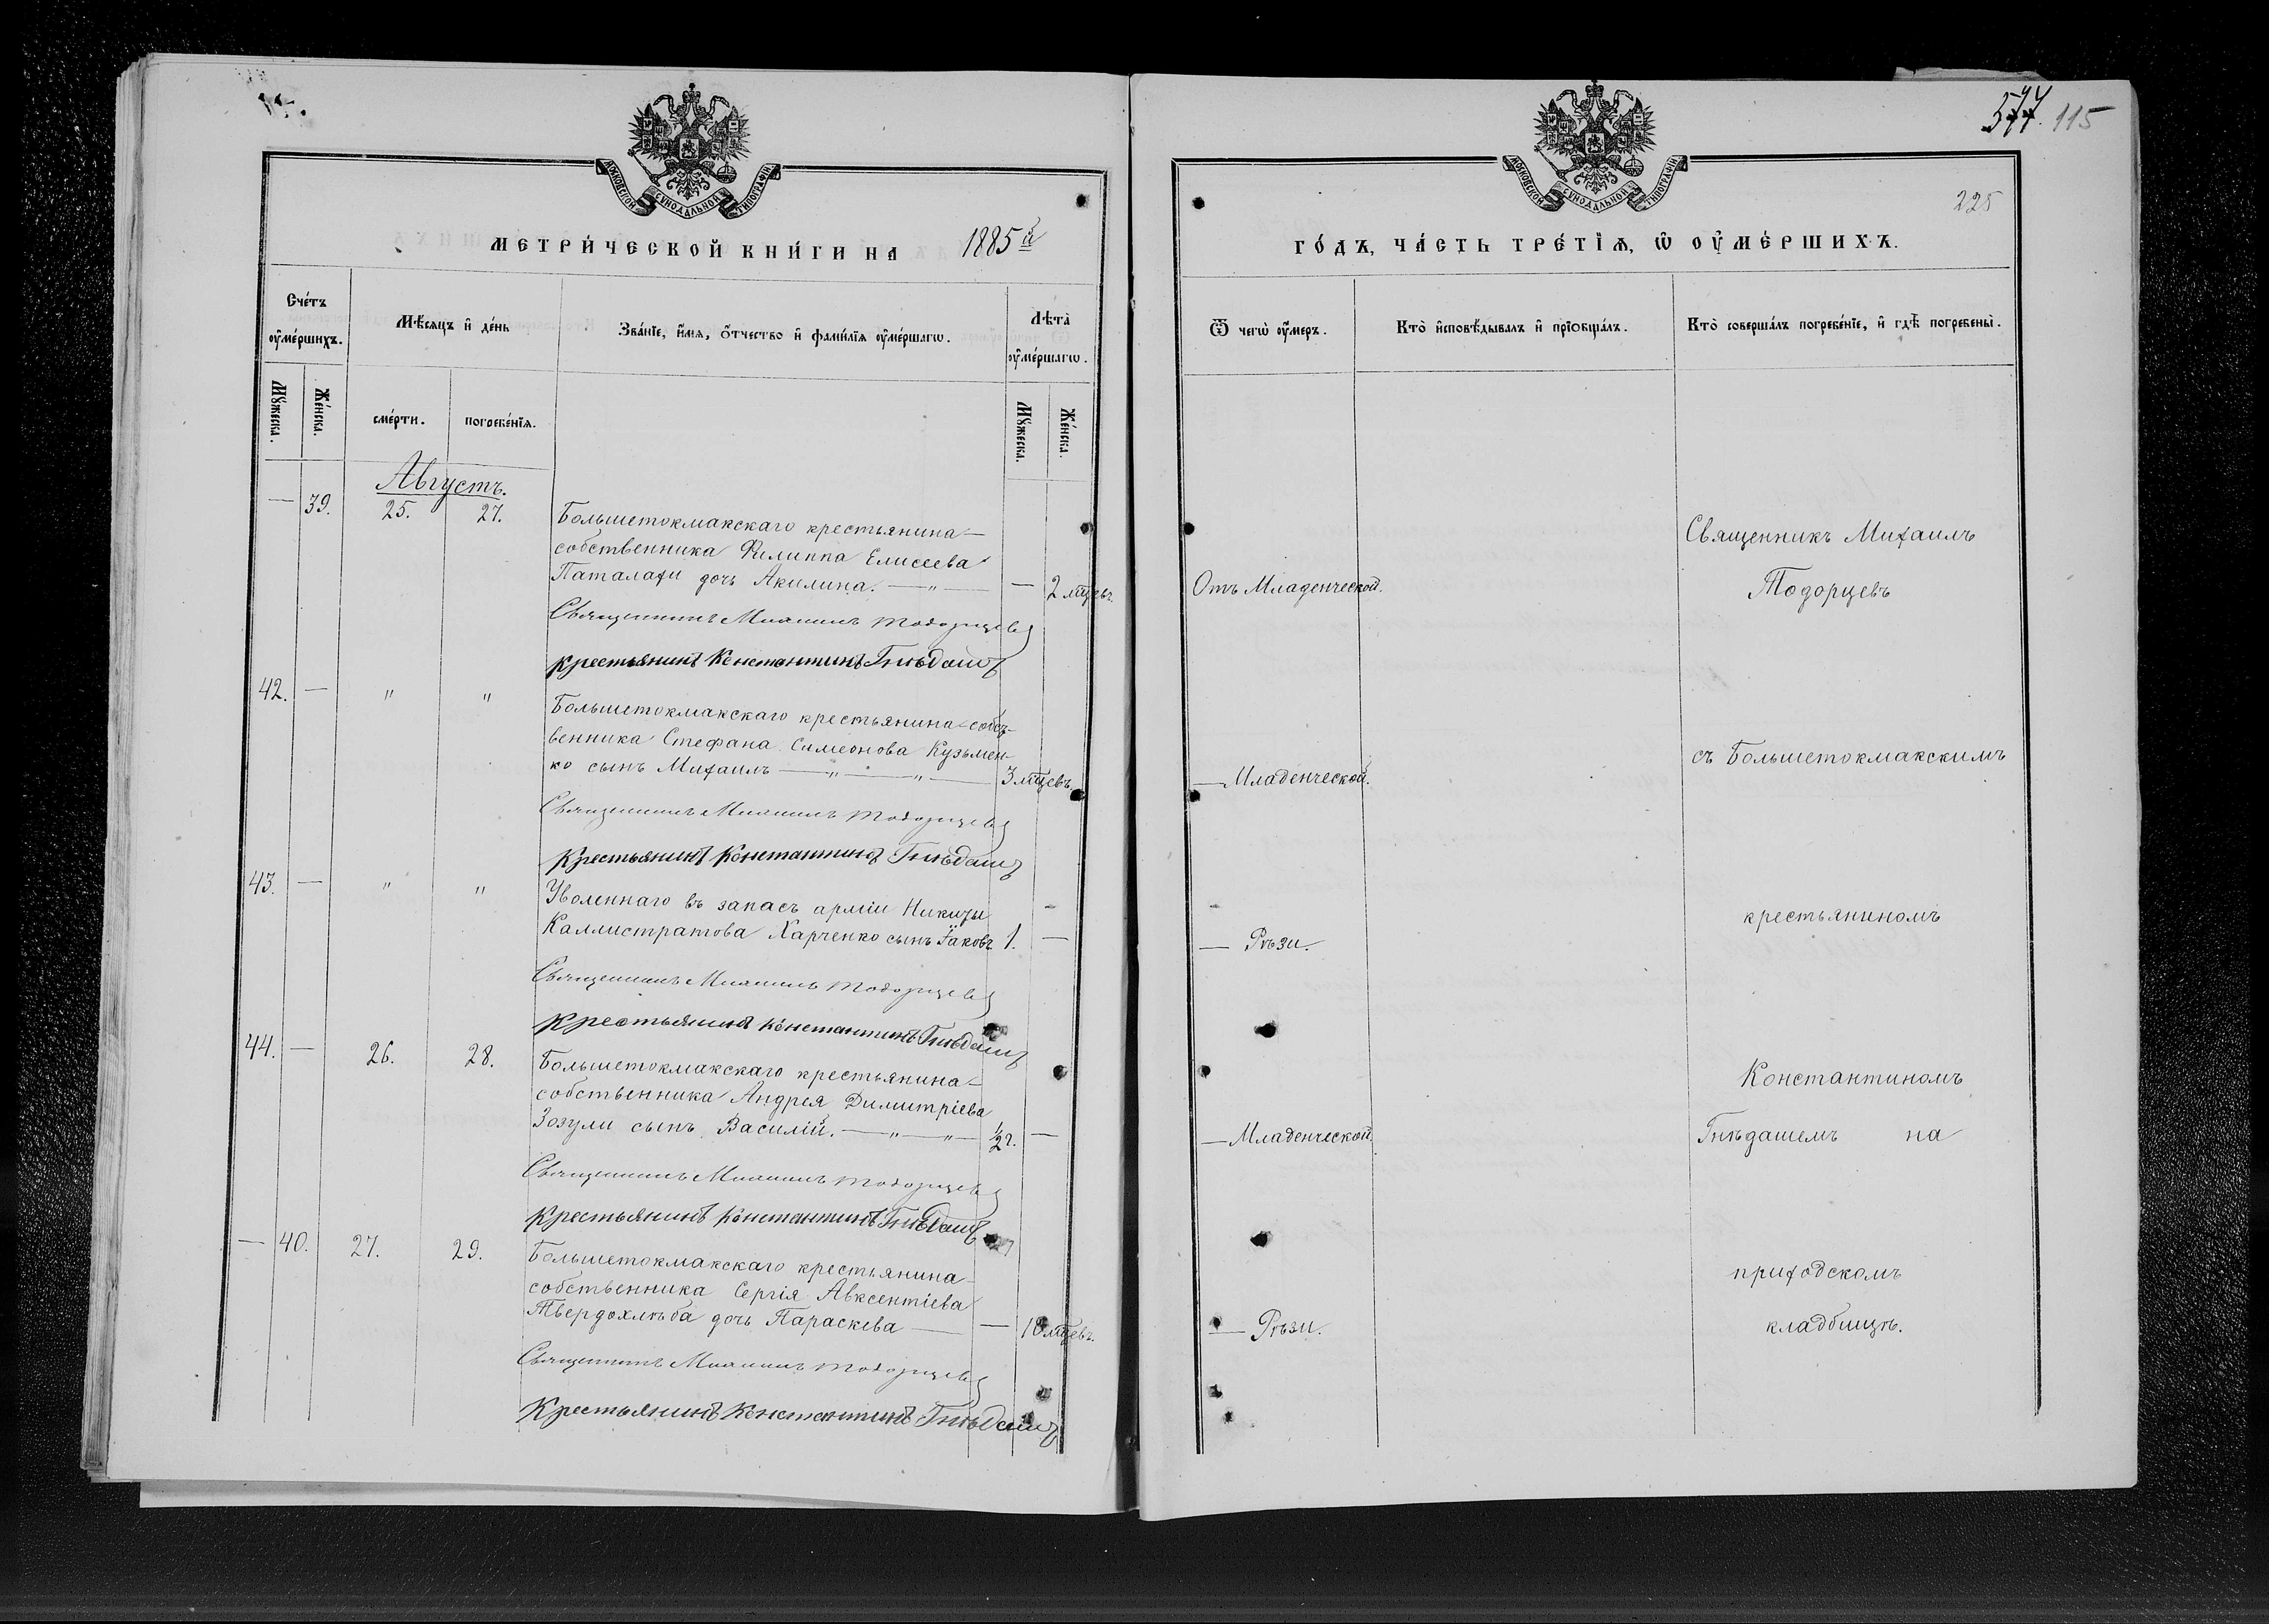 МОСКОВСКОЙ СѴНОДАЛЬНОЙ ТИПОГРАФІИ
МЕТРИ́ЧЕСКОЙ КНИ́ГИ НА 1885й
Сче́тъ ᲂу҆ме́ршихъ.
Мѣ́сяцъ и҆ де́нь
Зва́нїе, и҆́мѧ, ѻ҆́тчество и҆ фами́лїѧ ᲂу҆ме́ршагѡ.
Лѣ́та ᲂу҆ме́ршагѡ.
Мꙋ́жеска.
Же́нска.
сме́рти.
погребе́нїѧ.
Мꙋ́жеска.
Же́нска.
Августъ.
— 39. 25. 27. Большетокмакскаго крестьянина-
собственника Филиппа Елисеева
Паталахи дочь Акилина. —〃— — 2 мцевъ.
Священникъ Михаилъ Тодорцевъ
Крестьянинъ Константинъ Гнѣдашъ
42. — 〃 〃 Большетокмакскаго крестьянина-собст-
венника Стефана Симеонова Кузьмен-
ко сынъ Михаилъ —〃—〃— 3 мцевъ
Священникъ Михаилъ Тодорцевъ
Крестьянинъ Константинъ Гнѣдашъ
43. — 〃 〃 Уволеннаго въ запасъ арміи Никиты
Каллистратова Харченко сынъ Іаковъ 1. —
Священникъ Михаилъ Тодорцевъ
Крестьянинъ Константинъ Гнѣдашъ
44. — 26. 28. Большетокмакскаго крестьянина-
собственника Андрея Димитріева
Зозули сынъ Василій. —〃—〃— 1/2 г. —
Священникъ Михаилъ Тодорцевъ
Крестьянинъ Константинъ Гнѣдашъ
— 40. 27. 29. Большетокмакскаго крестьянина-
собственника Сергія Авксентіева
Твердохлѣба дочь Параскева — — 10 мцевъ.
Священникъ Михаилъ Тодорцевъ
Крестьянинъ Константинъ Гнѣдашъ
577. 115
225
МОСКОВСКОЙ СѴНОДАЛЬНОЙ ТИПОГРАФІИ
ГО́ДЪ, ЧА́СТЬ ТРЕ́ТЇѦ, Ѡ҆ ОУ҆МЕ́РШИХЪ.
Ѿ чегѡ̀ ᲂу҆́меръ.
Кто̀ и҆сповѣ́дывалъ и҆ прїѡбща́лъ.
Кто̀ соверша́лъ погребе́нїе, и҆ гдѣ̀ погребены̀.
Священникъ Михаилъ
Отъ Младенческой. Тодорцевъ
— Младенческой. съ Большетокмакскимъ
крестьяниномъ
— Рѣзи.
Константиномъ
— Младенческой. Гнѣдашемъ на
приходскомъ
— Рѣзи. кладбищѣ.